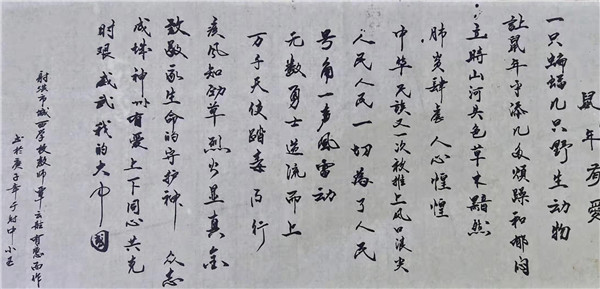 鼠年有愛
一只蝙蝠几只野生动物
让鼠年平添几多烦躁和郁闷
時山河失色草木黯然
肺炎肆虐人心惶惶
中华民族又一次被推上风口浪尖
人民人民一切为了人民
号角一声风雷动
无数勇士逆流而上
万千天使踏毒而行
疾风知劲草烈火显真金
致敬生命的守护神 众志
成城神州有爱上下同心共克
时艰威武我的大中國
射洪市城西学校教师覃云有感而作
庚子年于射中小区